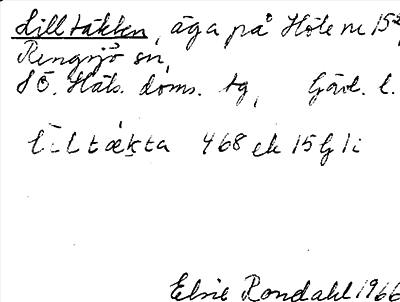 Lilltäkten, äga på Hole nr 15²,
Rengsjö sn,
SÖ. Häls. doms. tg, Gävl. l.
468 ek 15 G 1i
Elsie Rondahl 1966